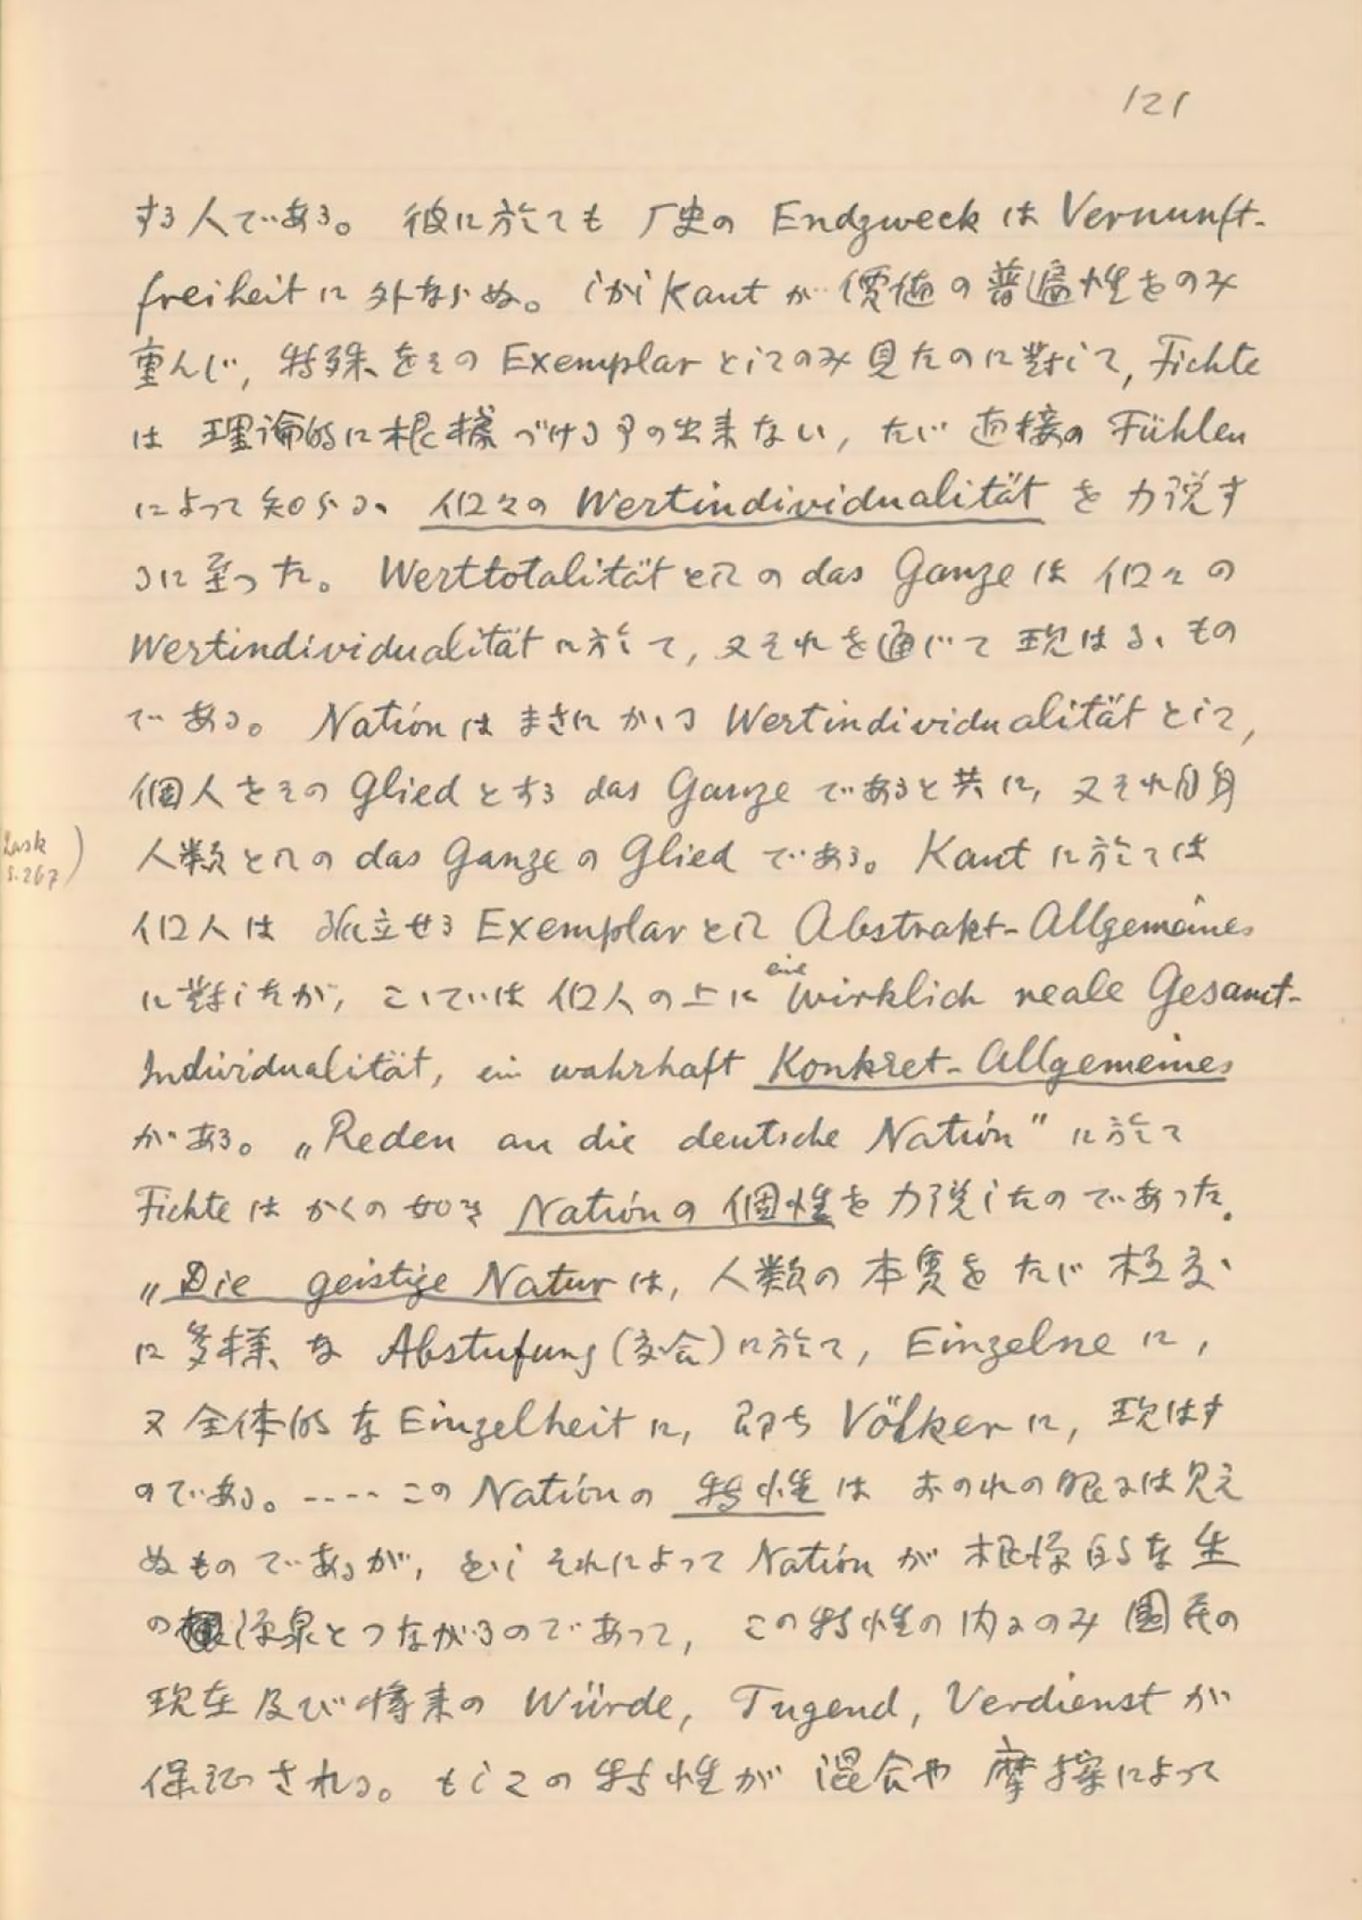 121
する人である。 彼に於ても 厂史の Endzweck は Vernunft-
freiheit に 外ならぬ。 しかし Kant が 價値の普遍性をのみ
重んじ, 特殊をその Exemplar としてのみ見たのに對して, Fichte
は 理論的に根據づける事の出来ない, たゞ 直接の Fühlen
によって知らるゝ 個々の Wertindividualität を力説す
るに至った。 Werttotalität としての das Ganze は 個々の
Wertindividualität に於て, 又それを通じて現はるゝもの
である。 Nation は まさに かゝる Wertindividualität として,
個人をその Glied とする das Ganze であると共に, 又それ自身
人類としての das Ganze の Glied である。 Kant に於ては
Lask
S. 267)
個人は 孤立せる Exemplar として Abstrakt-Allgemeines
に對したが, こゝでは 個人の上に eine wirklich reale Gesamt-
Individualität, ein wahrhaft Konkret-Allgemeines
がある。 „Reden an die deutsche Nation" に於て
Fichte は かくの如き Nation の個性を力説したのであった.
„Die geistige Natur は, 人類の本質を たゞ 極
に多様な Abstufung ( ) に於て, Einzelne に,
又全体的な Einzelheit に, 即ち Völker に, 現はす
のである。 ---- この Nation の 特性は おのれの眼には見え
ぬものであるが, 而し それによって Nation が 根源的な生
の 源泉とつながるのであって, この特性の内にのみ 國民の
現在及び將来の Würde, Tugend, Verdienst が
保証される。 もしこの特性が 混合や 摩擦によって